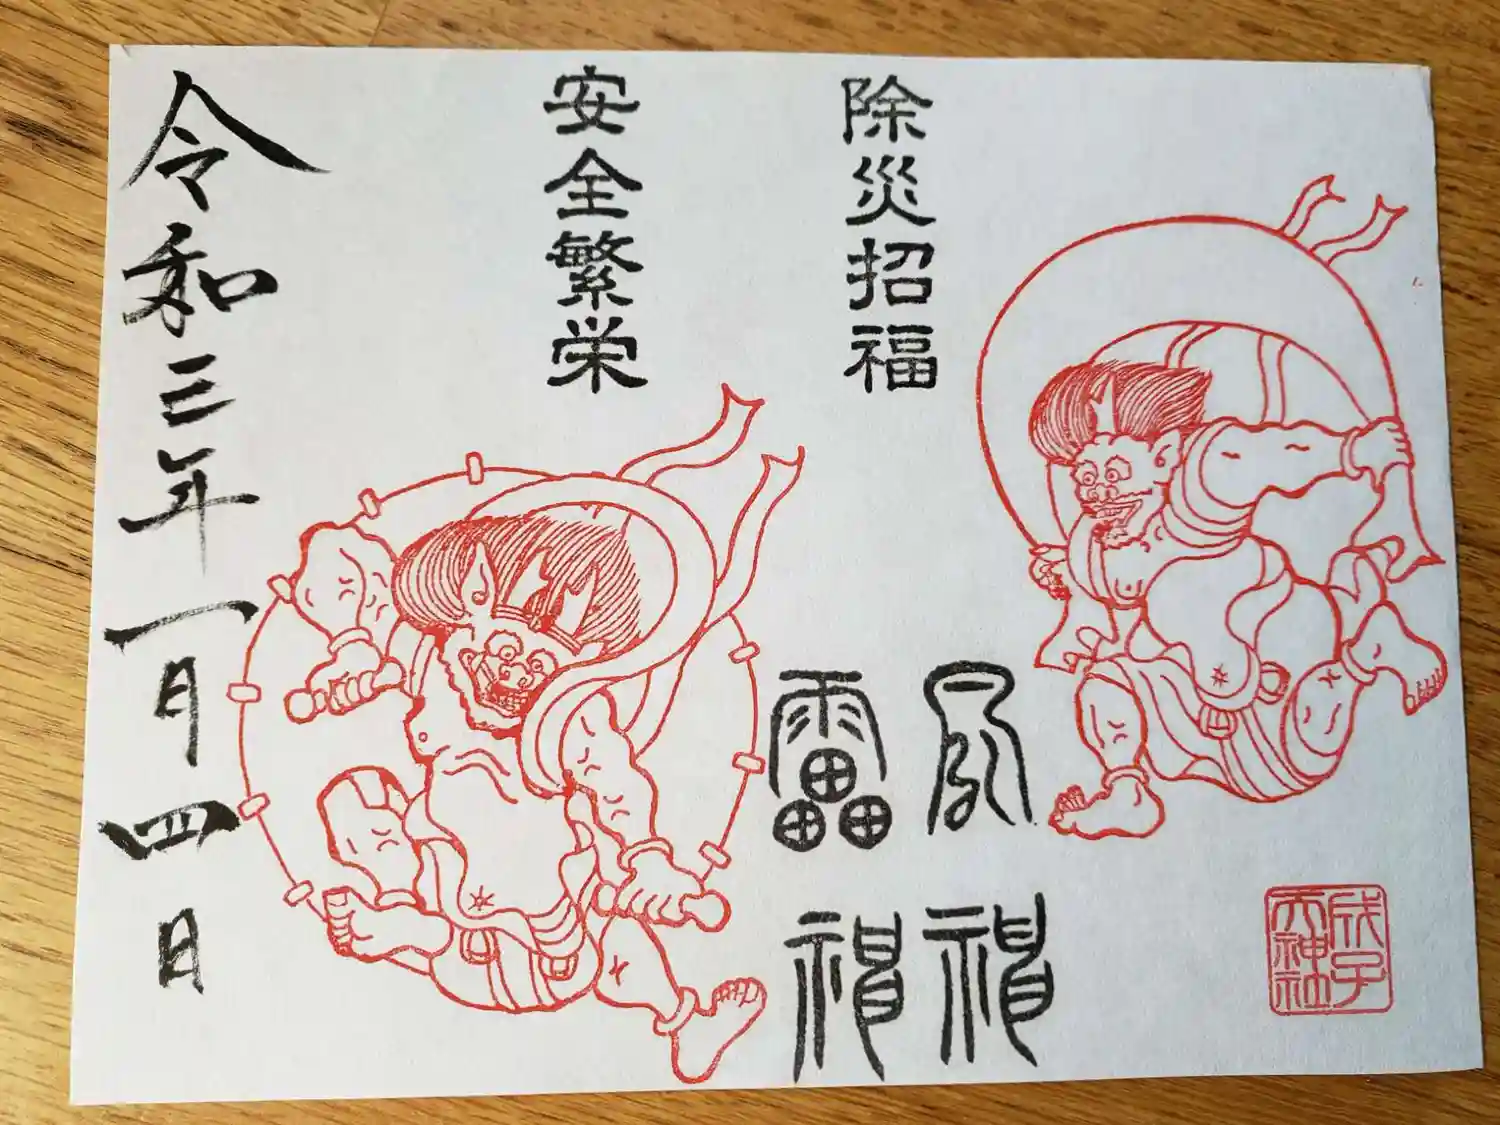 除災招福
安全繁栄
風神
雷神
成子
天神社
令和三年一月四日